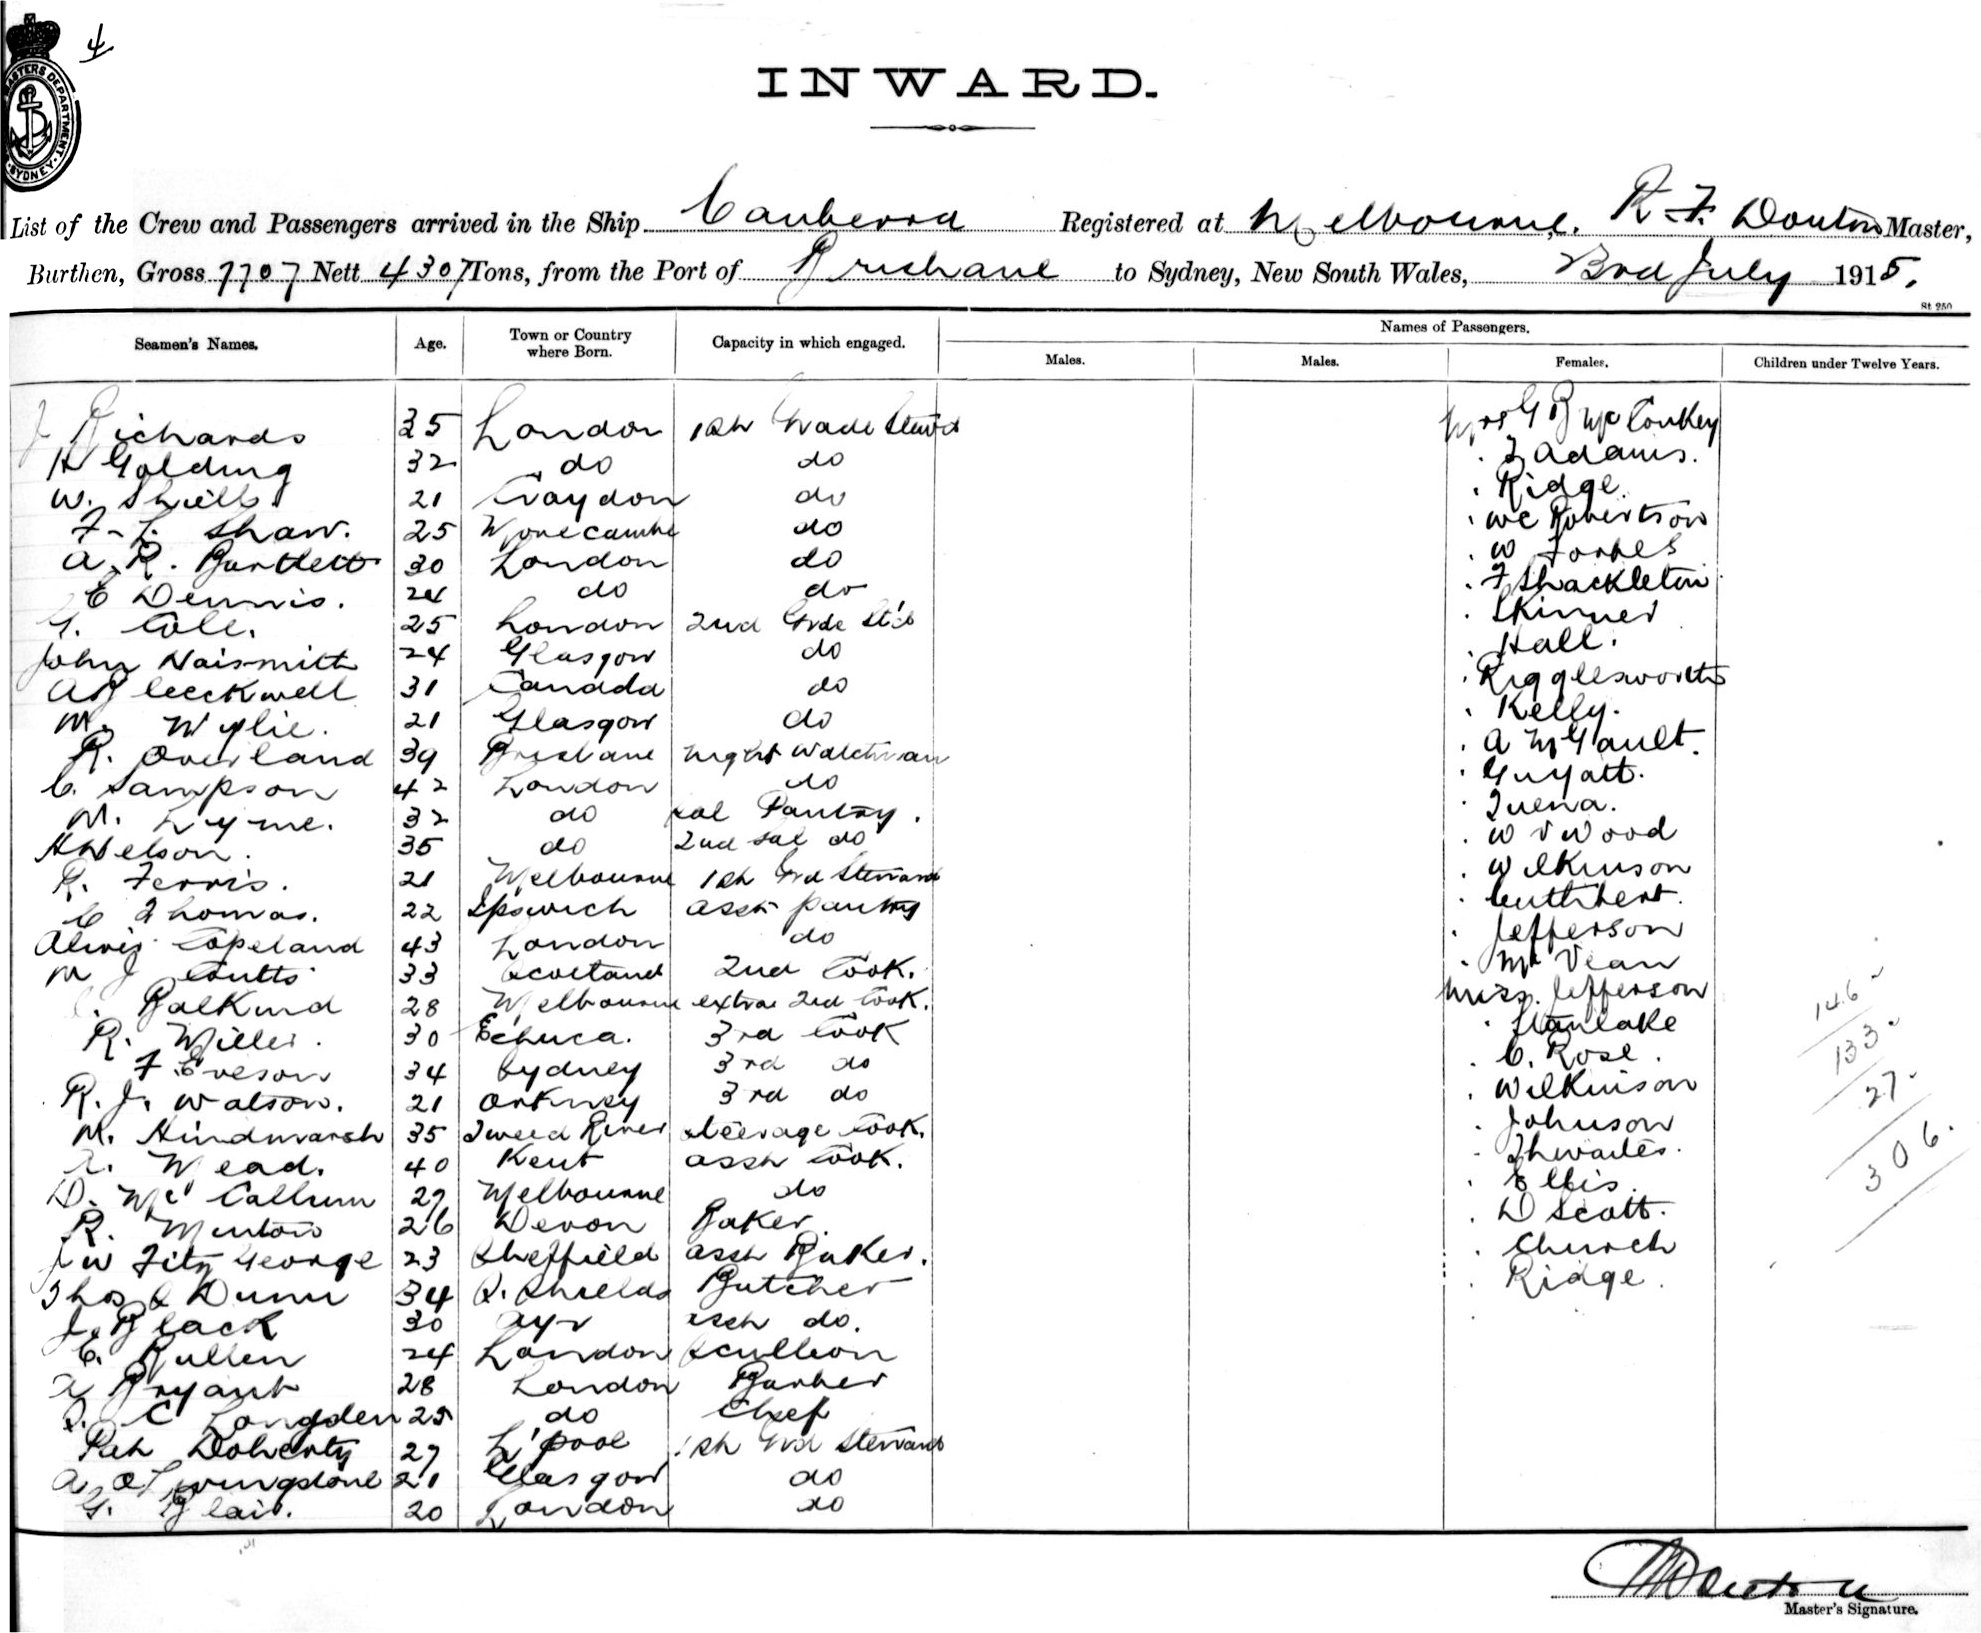 4
MASTERS DEPARTMENT SYDNEY
INWARD.
List of the Crew and Passengers arrived in the Ship Canberra Registered at Melbourne. R. F. Master,
Burthen, Gross 7707 Nett 4307 Tons, from the Port of Brisbane to Sydney, New South Wales, 3rd July 1915.
St 250
Seamen's Names. Age. Town or Country where Born. Capacity in which engaged. Names of Passengers.
Males. Males. Females. Children under Twelve Years.
J Richards 35 London 1st Grade Stew'd Mrs G B McConkey
H Golding 32 do do " T Adams.
W. Shiells 21 Croydon do " Ridge
F. L. Shaw. 25 Morecambe do " WC Robertson
A. R. Bartlett 30 London do " W Forbes
E Dennis. 24 do do " F Shackleton
G. Cole. 25 London 2nd Grde St'd " Skinner
John Naismith 24 Glasgow do " Hall.
31 Canada do " Rigglesworth
M. Wylie. 21 Glasgow do " Kelly.
R. Overland 39 Brisbane Night Watchman " A McGault.
C. Sampson 42 London do " Guyatt.
M. Lyme. 32 do Sal Pantry. " Tuena.
H Nelson. 35 do 2nd Sal do " W V Wood
R. Ferris. 21 Melbourne 1st Grd Steward " Wilkinson
C Thomas. 22 Ipswich Asst pantry " Cuthbert.
Copeland 43 London do " Jefferson
M J Coutts 33 Scotland 2nd Cook. " McVean
Balkind 28 Melbourne extra 2nd Cook. Miss. Jefferson
R. Miller. 30 Echuca. 3rd Cook " Stanlake
F. Eveson 34 Sydney 3rd do " C. Rose.
R. J. Watson. 21 Orkney 3rd do " Wilkinson
M. Hindmarsh 35 Tweed River Steerage Cook. " Johnson
Mead. 40 Kent Asst Cook. " Thwaites.
D. McCallum 27 Melbourne do " Ellis.
R. Minton 26 Devon Baker. " D Scott.
J W Fitz George 23 Sheffield Asst Baker. " Church
Thos Dunn 34 S. Shields Butcher " Ridge.
J. Black 30 Ayr Asst do.
C. Bullen 24 London Scullion
Bryant 28 London Barber
C Longden 25 do Chef
Pat Doherty 27 L'pool 1st Grd Steward
A Livingstone 21 Glasgow do
G. Blair. 20 London do
146
133
27
306.
Master's Signature.